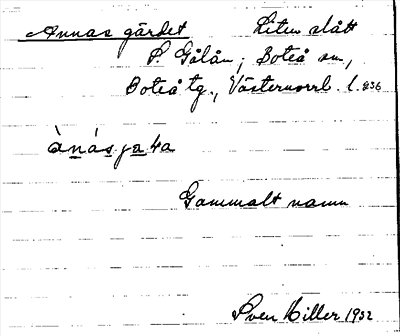 Annas gärdet Liten slått
S. Gålån, Boteå sn,
Boteå tg., Västernorrl. l. 836
ànásjaṭa
Gammalt namn
Sven Hiller 1932